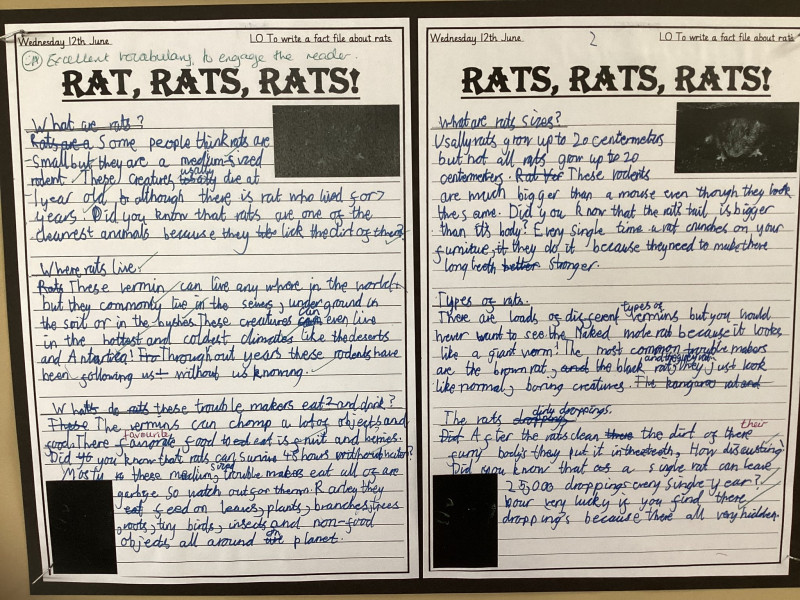 Wednesday 12th June
LO To write a fact file about rats
Excellent vocabulary to engage the reader.
RAT, RATS, RATS!
What are rats?
Rats are a Some people think rats are
small but they are a medium-sized
rodent. These creatures usally die at
1 year old, to although there is rat who lived for 7
years. Did you know that rats are one of the
cleanest animals because they lick the dirt of
Where rats live.
Rats These vermin can live any where in the world,
but they commonly live in the sewers, underground in
the soil or in the bushies. These creatures can even live
in the hottest and coldest climates like the deserts
and Antartica! Throughout years these rodents have
been following us without us knowing.
What do rats these trouble makers eat? and drink?
These The vermins can chomp a lot of objects and
food. There favourite food to eat is fruit and berries.
Did you know that rats can survive 48 hours without water?
Mosty these medium, sized trouble makers eat all of are
garbge so watch out for them. Rarley they
eat feed on leaves, plants, branches, trees
roots, tiny birds, insects and non-food
objects all around planet.
Wednesday 12th June
2
LO To write a fact file about rats
RATS, RATS, RATS!
What are rats sizes?
Usally rats grow up to 20 centermeters
but not all rats grow up to 20
centermeters. These rodents
are much bigger than a mouse even though they look
the same. Did you know that the rats tail is bigger
than it's body? Every single time a rat crunches on your
furniture, it they do it because they need to make there
long teeth better stronger.
Types of rats.
There are loads of different types of vermins but you would
never want to see the Naked mole rat because it looks
like a giant worm! The most common trouble makers
are the brown rat, and the black rat, they just look
like normal, boring creatures. The kangaroo rat and
The rats droppings dirty droppings.
Did After the rats clean there the dirt of there their
furry body's they put it in there teeth, How disgusting!
Did you know that a single rat can leave
25,000 droppings every single year?
your very lucky if you find there
dropping's because there all very hidden.